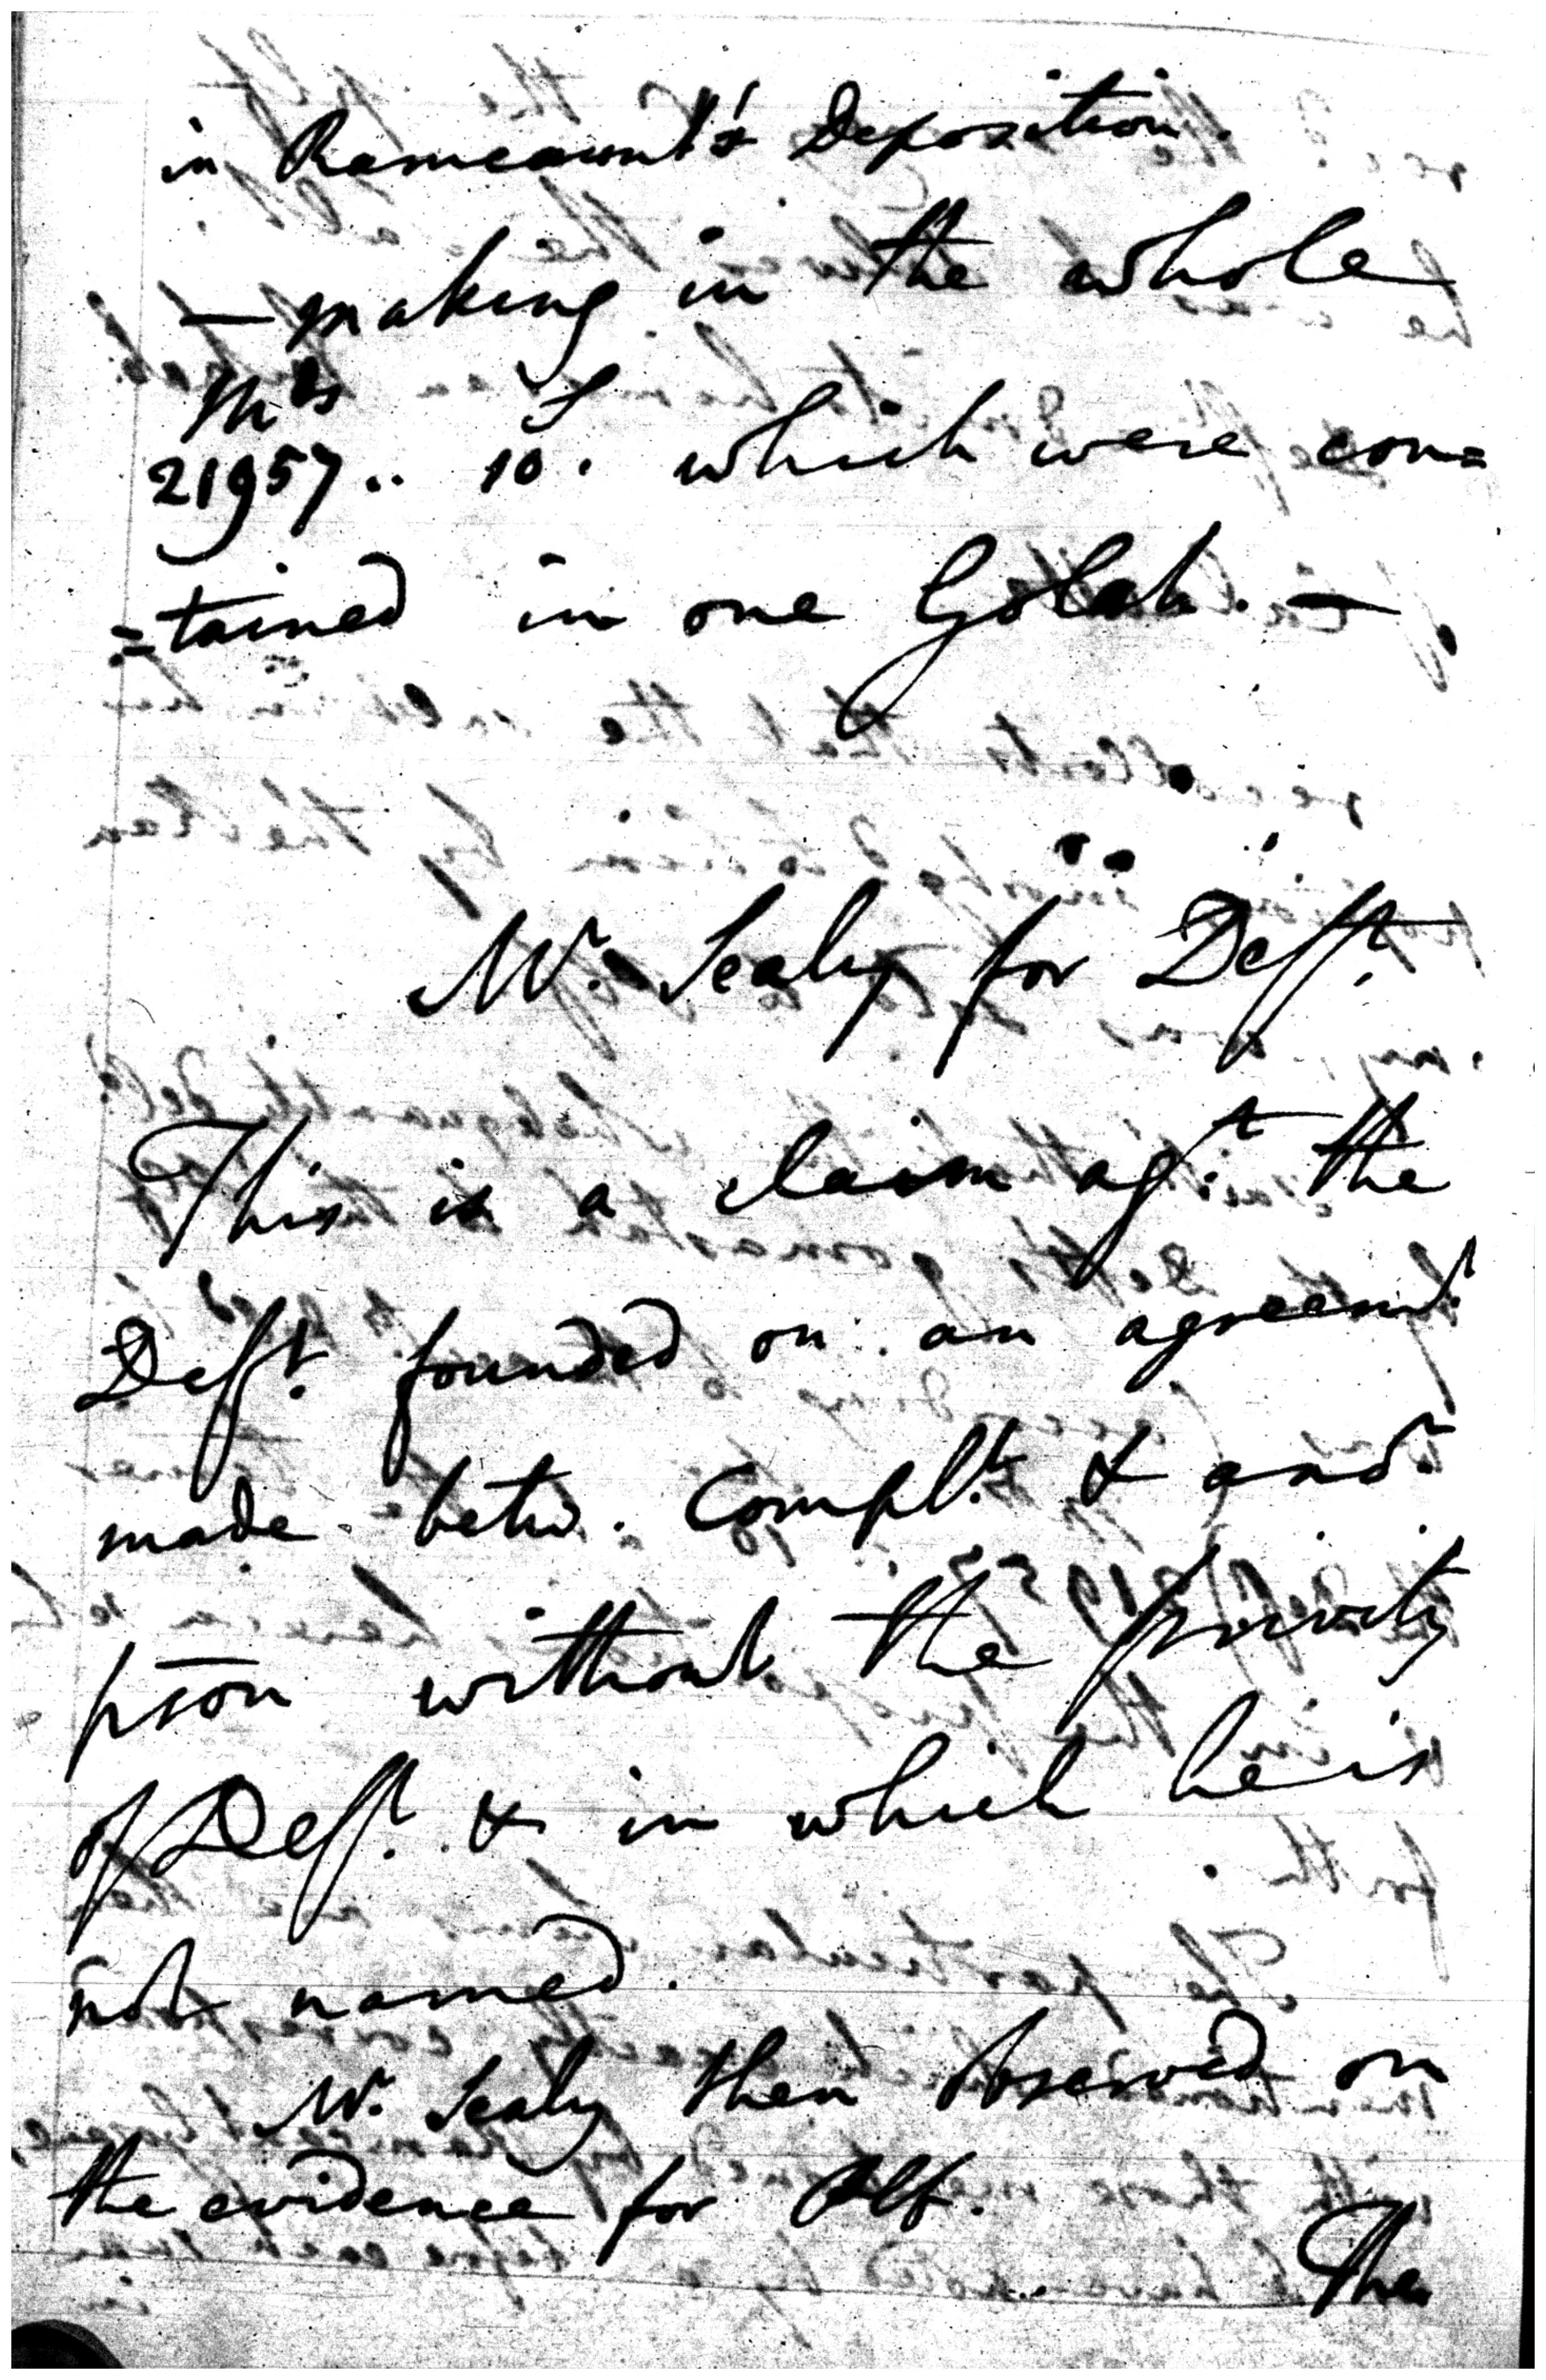 in Ramcaunt's Deposition.
— making in the whole
Mds S
21957.. 10. which were con=
=tained in one Golah. —
Mr. Sealy for Defft.
This is a claim agt. the
Defft. founded on an agreemt.
made betw. Complt. & anor.
pson without the privity
of Defft. & in which he is
not named.
Mr. Sealy then observed on
the evidence for Plf.
The